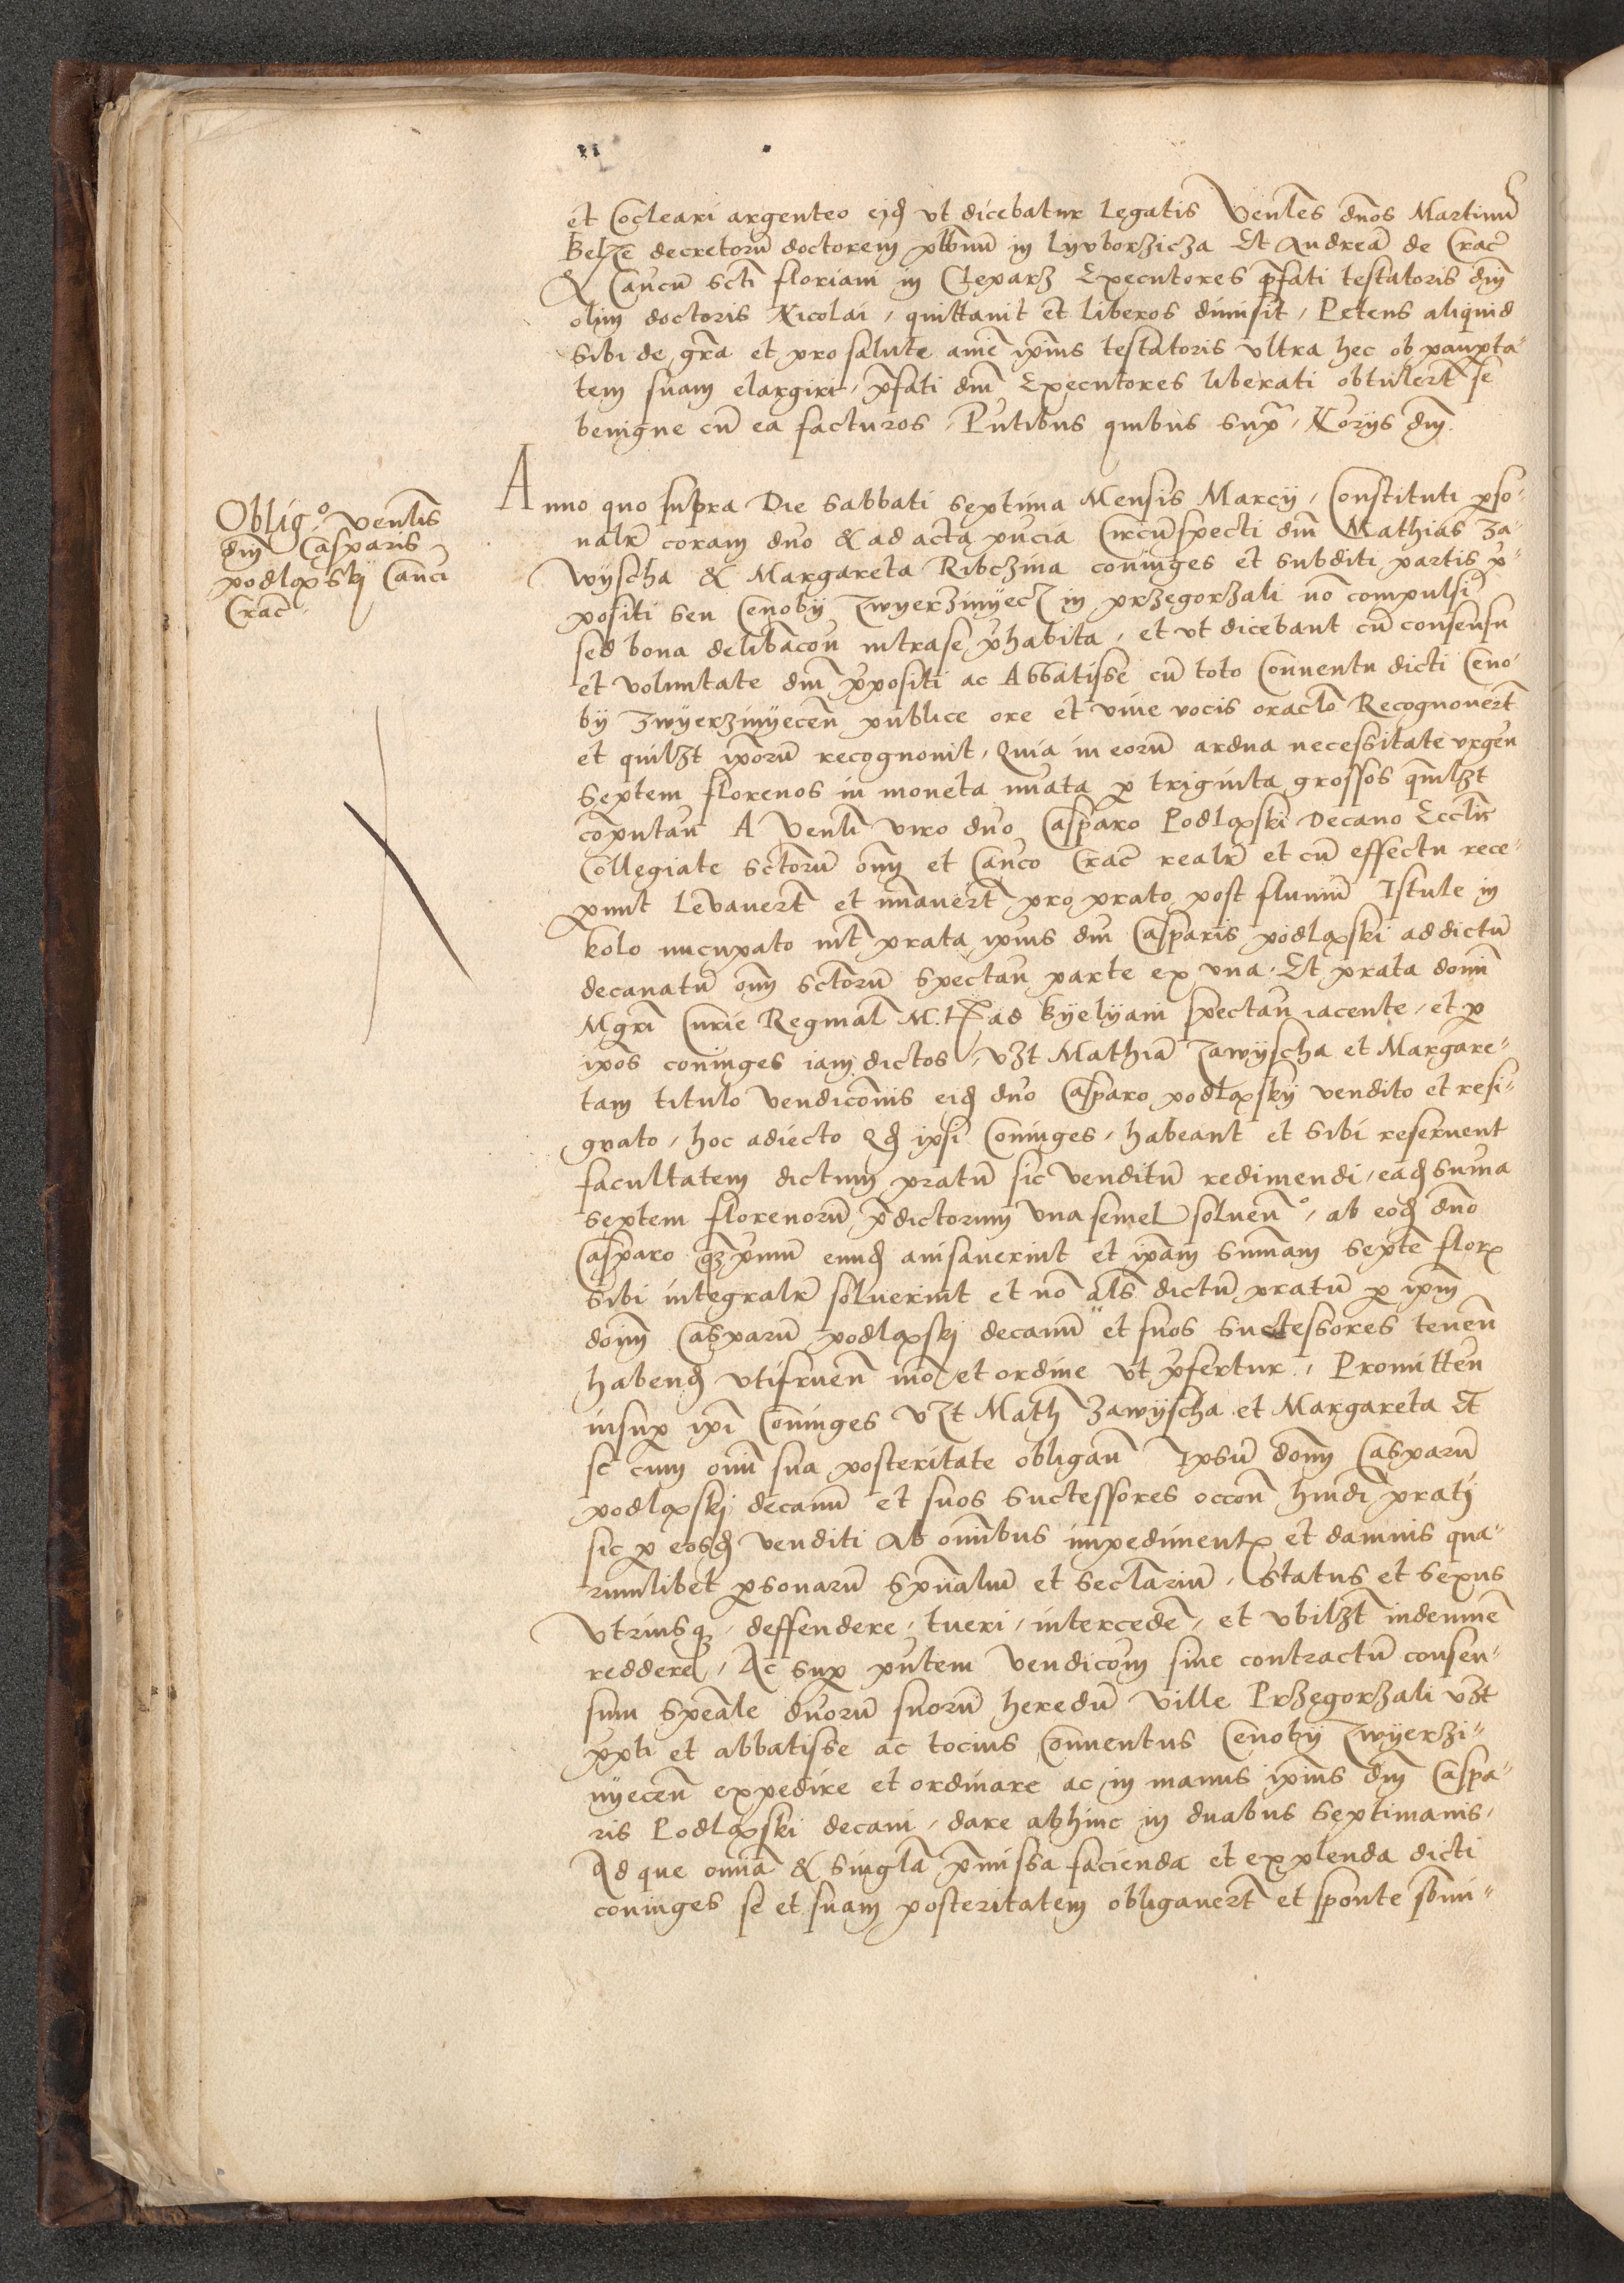 et Cocleari argenteo eid ut dicebatur legatis Venles dnos Martinu
Belze decretoru doctorem plbnu in lyvborzicza Et Andrea de Crac
& Cancu scti floriani in Cleparz Executores pfati testatoris dni
olim doctoris Nicolai, quittavit et liberos dimisit, Petens aliquid
sibi de gra et pro salute aie ipius testatoris ultra hec ob paupta-
tem suam elargiri, pfati dni Executores liberati obtulert se
benigne cu ea facturos, Pntibus quibus sup, Noriis dni
Oblig.o venlis
dni Casparis
podlqpskij Canci
Crac
Anno quo supra Die Sabbati septima Mensis Marcij, Constituti pso-
nalr coram dno & ad acta pncia Circuspecti dni Mathias Za-
wijscha & Margareta Ribczina coniuges et subditi partis p-
positi seu Cenobij Zwyerzinyecz in przegorzali no compulsi
sed bona delibacon intra se phabita, et ut dicebant cu consensu
et voluntate dni ppositi ac Abbatisse cu toto Conventu dicti Ceno-
bij Zwijerzinijecen publice ore et vive vocis oraclo Recognovert
et quilzt ipor recognovit, Quia in eoru ardua necessitate urgen
septem florenos in moneta nuata p triginta grossos qmlzt
coputan A Venli viro dno Casparo Podlqpski Decano Ecclie
Collegiate sctoru om et Canco Crac realr et cu effectu rece-
punt Levavert et nuavert pro prato post fluviu Istule in
kolo nucupato int prata ipius dni Casparis podlqpski ad dictu
decanatu om sctoru spectan parte ex una. Et prata domi
Mgri Curie Reginal M. Lp ad Byelyani spectan iacente, et p
ipos coniuges iam dictos, uzt Mathia Zawijscha et Margare-
tam titulo vendiconis eid dno Casparo podlqpskij vendito et resi-
gnato, hoc adiecto Qd ipsi Coniuges, habeant et sibi reservent
facultatem dictum pratu sic venditu redimendi, ead suma
septem florenoru pdictorum una semel soluen, ab eod dno
Casparo qz pmu eund avisaverint et ipam sumam septe flor
sibi integralr solverint et no als dictu pratu p ipm
dom Casparu podlqpskj decanu et suos successores tenen
habend utifruen mo et ordine ut pfertur, Promitten
insup ipi Coniuges uzt Math Zawijscha et Margareta Et
se cum omi sua posteritate obligan Ipsu dom Casparu
podlqpskj decanu et suos successores occon huidi pratj
sic p eosd venditi ab omibus impediment et damnis qua-
rumlibet psonaru spualiu et seclariu, Status et sexus
utriusqz, deffendere, tueri, intercede, et ubilzt indemne
reddere, Ac sup pntem vendicom sive contractu consen-
sum speale dnoru suoru heredu ville Przegorzali uzt
ppti et abbatisse ac tocius Conventus Cenobij Zwijerzi-
nijecen expedire et ordinare ac in manus ipius dni Caspa-
ris Podlqpski decani, dare abhinc in duabus septimanis,
Ad que omia & singla pmissa facienda et explenda dicti
coniuges se et suam posteritatem obligavert et sponte sbmi-